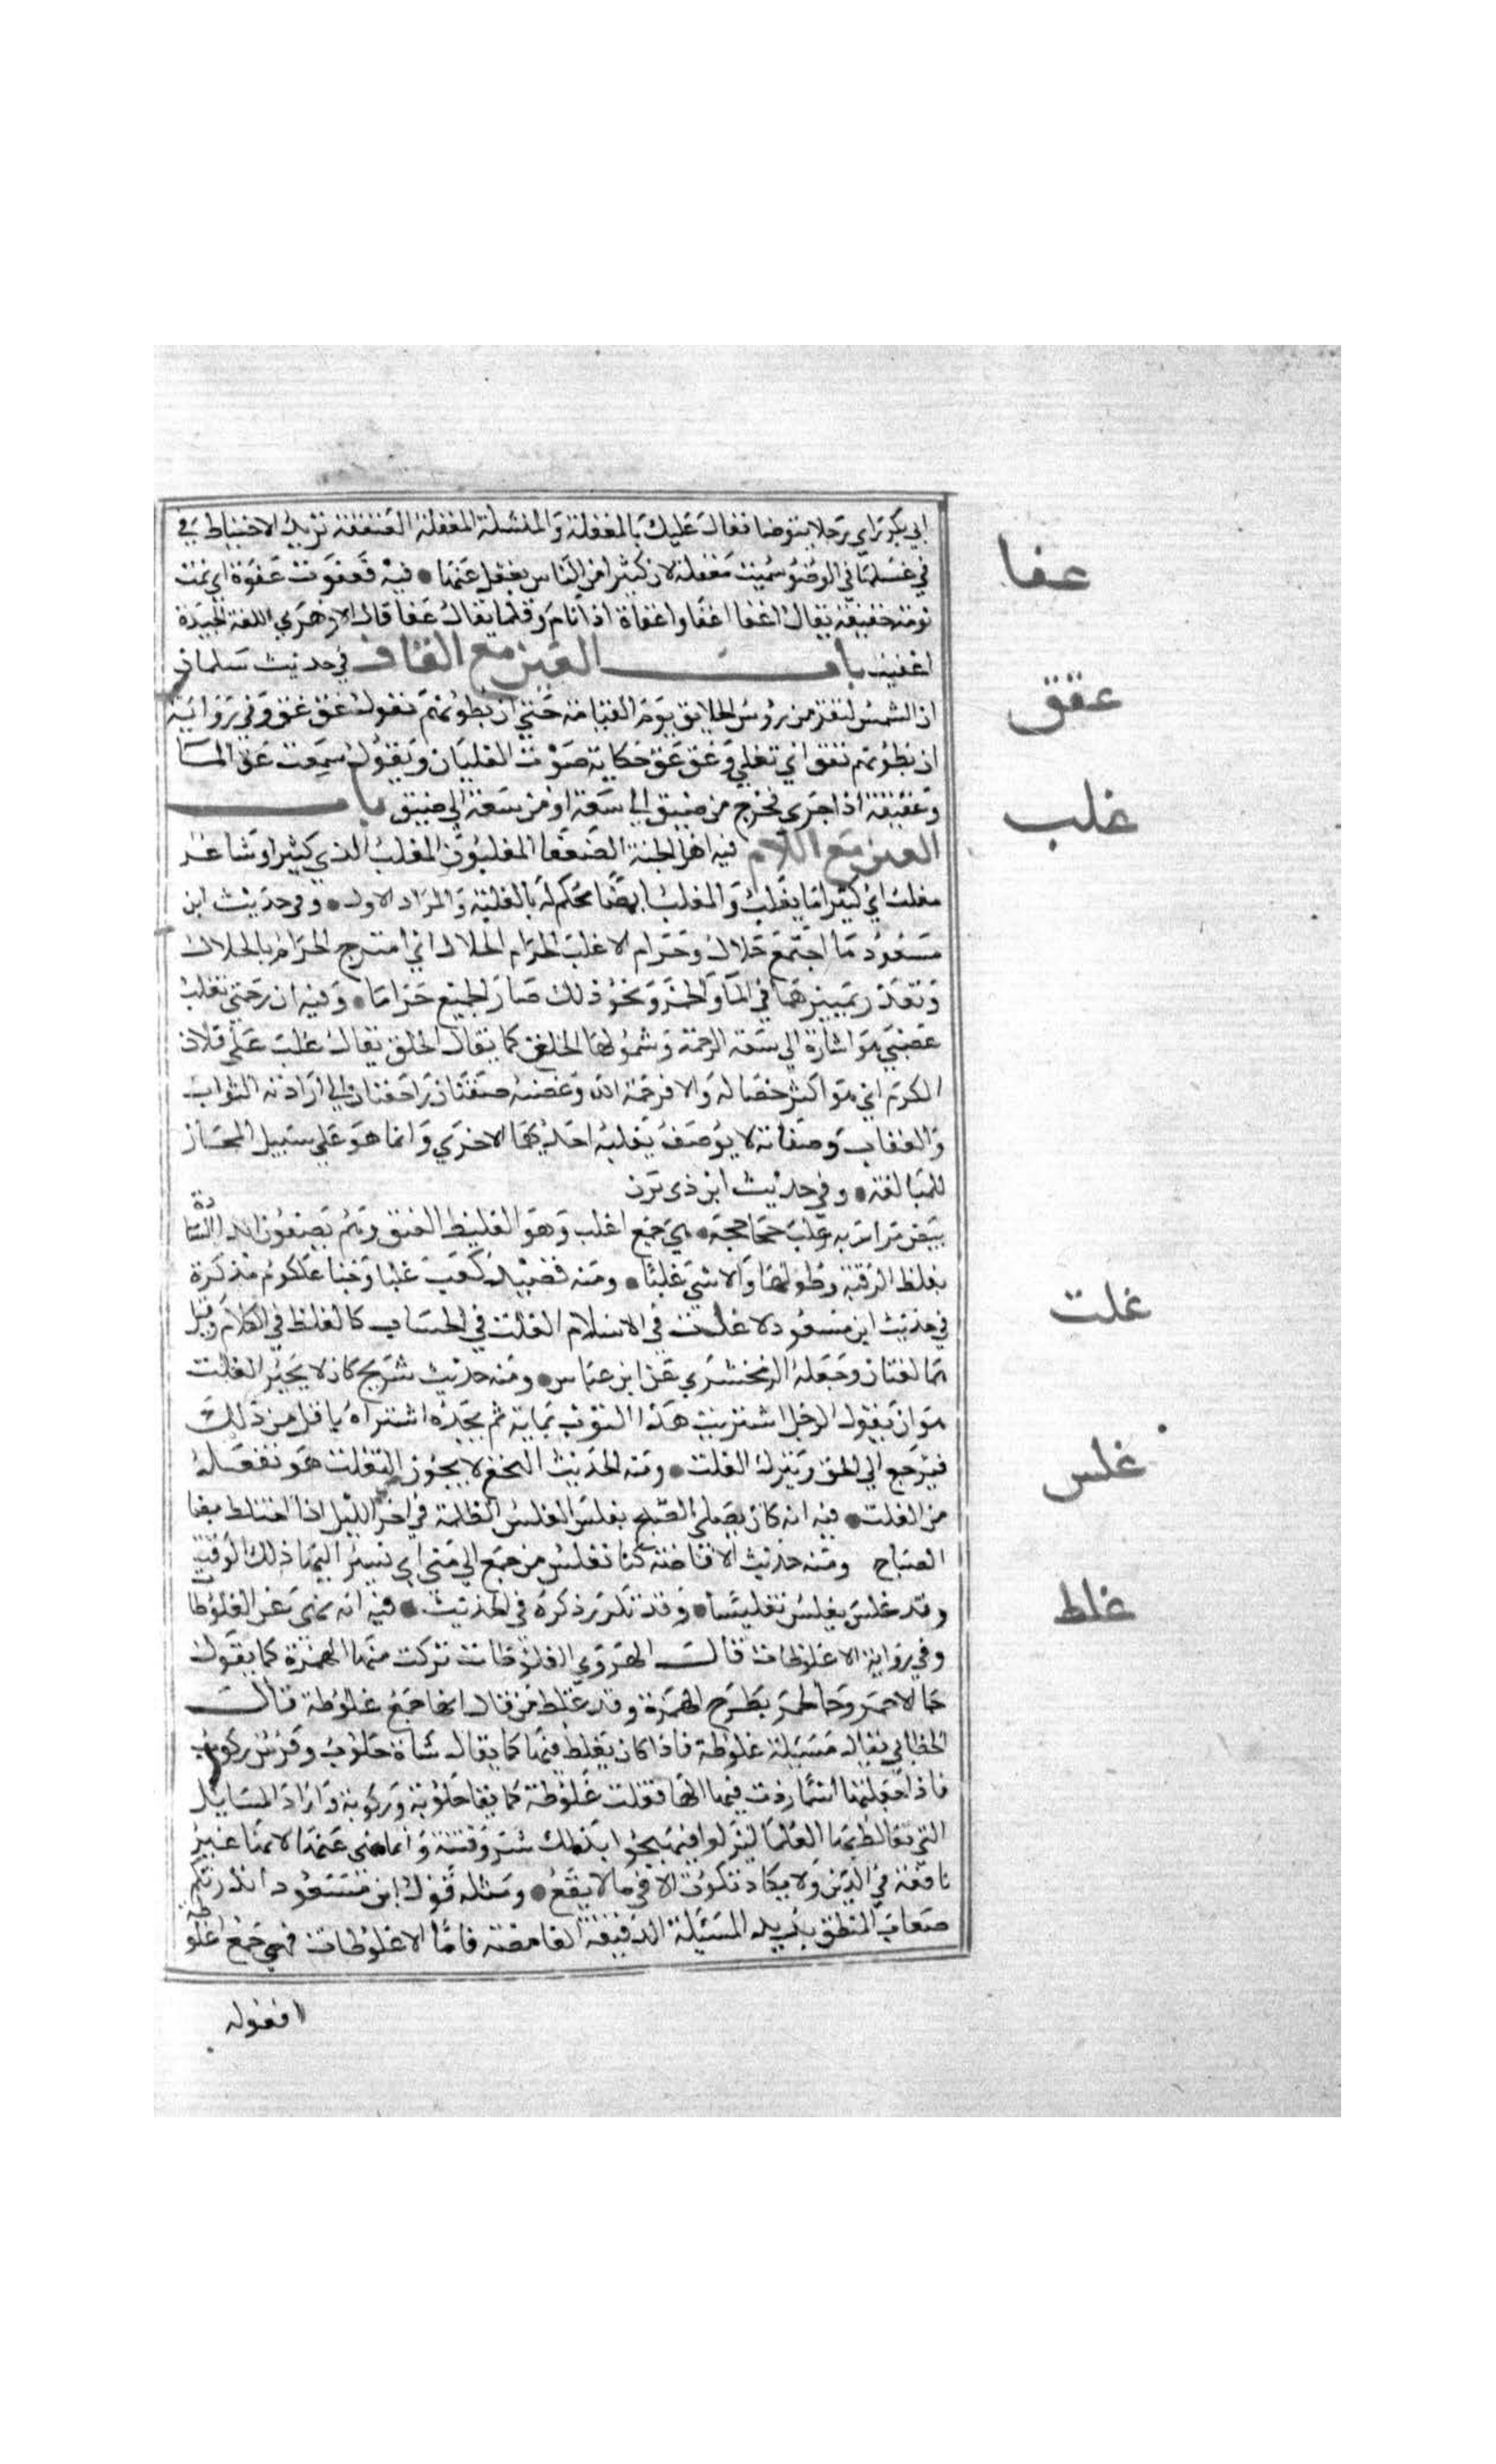 ابي بكر راي رجلا يتوضا فقال عليك بالمغفلة والمنشلة المغفلة العنفقة يريد الاحتياط في
في غسلها في الوضؤ سميت مغفلة لان كثيرا من الناس يغفل عنها فيه فغفوت غفوة اي نمت
نومة خفيفة يقال اغفا اغفا واغفاة اذا نام وقلما يقال غفا قال الازهري اللغة الجيدة
اغفيت باب الغين مع القاف في حديث سلمان
ان الشمس لتقرب من رؤس الخلايق يوم القيامة حتي ان بطونهم تقول غق غق وفي رواية
ان بطونهم تغق اي تغلي وغق غق حكاية صوت الغليان ويقول سمعت غق الما
وغقيقه اذا جري فخرج من ضيق الي سعة او من سعة الي ضيق باب
الغين مع اللام فيه اهل الجنة الضعفا المغلبون المغلب الذي كثيرا وشاعر
مغلب اي كثيرا ما يغلب والمغلب ايضا يحكم له بالغلبة والمراد الاول وفي حديث ابن
مسعود ما اجتمع حلال وحرام الا غلب الحرام الحلال اي امتزج الحرام بالحلال
وتعذر تمييزهما في الما والخمر ونحو ذلك صار الجميع حراما وفيه ان رحمتي تغلب
غضبي هو اشارة الي سعة الرحمة وشمولها الخلق كما يقال الخلق يقال غلب علي فلان
الكرم اي هو اكثر خصاله والا فرحمة الله وغضبه صفتان راجعتان الي ارادته الثواب
والعقاب وصفاته لا يوصف يغلبه احديهما الاخري وانما هو علي سبيل المجاز
للمبالغة وفي حديث ابن ذي يزن
بيض مرازبه غلب جحاجحة هي جمع اغلب وهو الغليظ العنق وهم يصفون ابدا السادة
بغلظ الرقبة وطولها والانثي غلبا ومنه قصيد كعب غلبا وجنا علكوم مذكرة
في حديث ابن مسعود لا غلت في الاسلام الغلت في الحساب كالغلط في الكلام وقيل
هما لغتان وجعله الزمخشري عن ابن عباس ومنه حديث شريح كان لا يجيز الغلت
هو ان يقول الرجل اشتريت هذا الثوب بماية ثم يجده اشتراه باقل من ذلك
فيرجع الي الحق ويترك الغلت ومنه الحديث النخعي لا يجوز التغلت هو تفعل
من الغلت فيه انه كان يصلي الصبح بغلس الغلس الظلمة في اخر الليل اذا اختلط بضيا
الصباح ومنه حديث الافاضة كنا نغلس من جمع الي مني اي نسير اليها ذلك الوقت
وقد غلس يغلس تغليسا وقد تكرر ذكره في الحديث فيه انه نهي عن الغلوطا
وفي رواية الاغلوطات قال الهروي الغلوطات تركت منها الهمزة كما يقول
جا الاحمر وجا لحمر بطرح الهمزة وقد غلط من قال انها جمع غلوطة قال
الخطابي يقال مسيلة غلوطة فاذا كان يغلط فيها كما يقال شاة حلوب وفرس ركوب
فاذا جعلتها اسما زدت فيها الها فقلت غلوطة كما يقا حلوبة وركوبة واراد المسايل
التي يغالط بها العلما ليزلوا فيهيج بذلك شر وفتنة وانما نهي عنها لانها غير
نافعة في الدين ولا يكاد تكون الا في ما لا يقع ومثله قول ابن مسعود انذرتكم
صعاب المنطق يريد المسئيلة الدقيقة الغامضة فاما الاغلوطات فهي جمع اغلوطة
افعوله
عفا
عقق
غلب
غلت
غلس
غلط